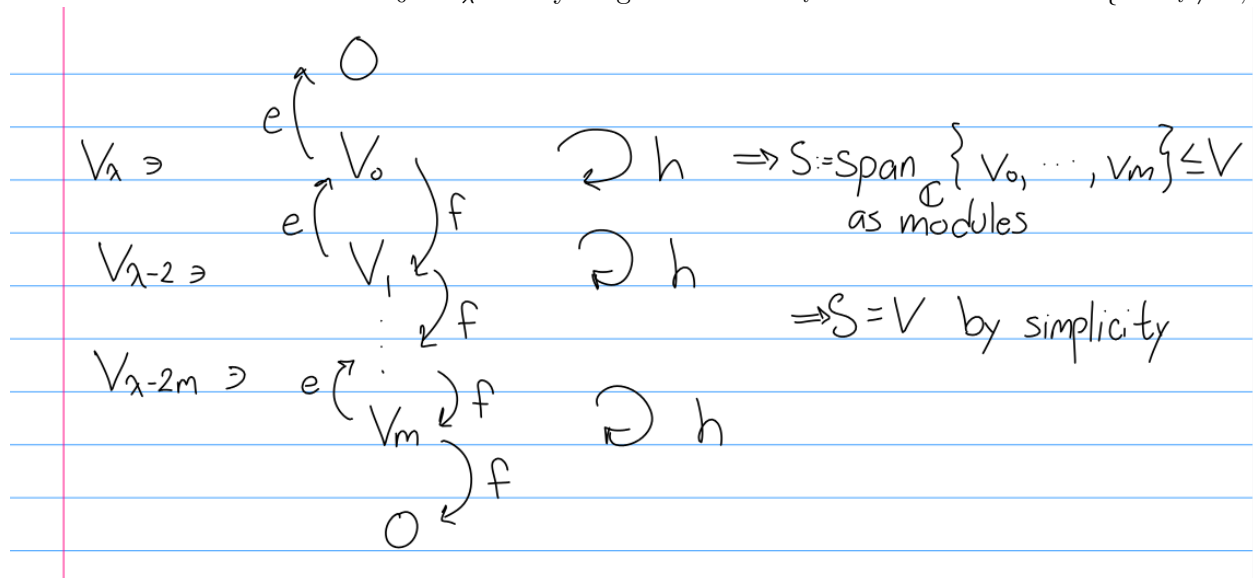 0
e
V_λ ∋ V_0 h ⟹ S:=span_ℂ { V_0, ⋯, V_m } ≤ V
as modules
e f
V_{λ-2} ∋ V_1 h
f
⟹ S = V by simplicity
V_{λ-2m} ∋ e f
V_m h
f
0